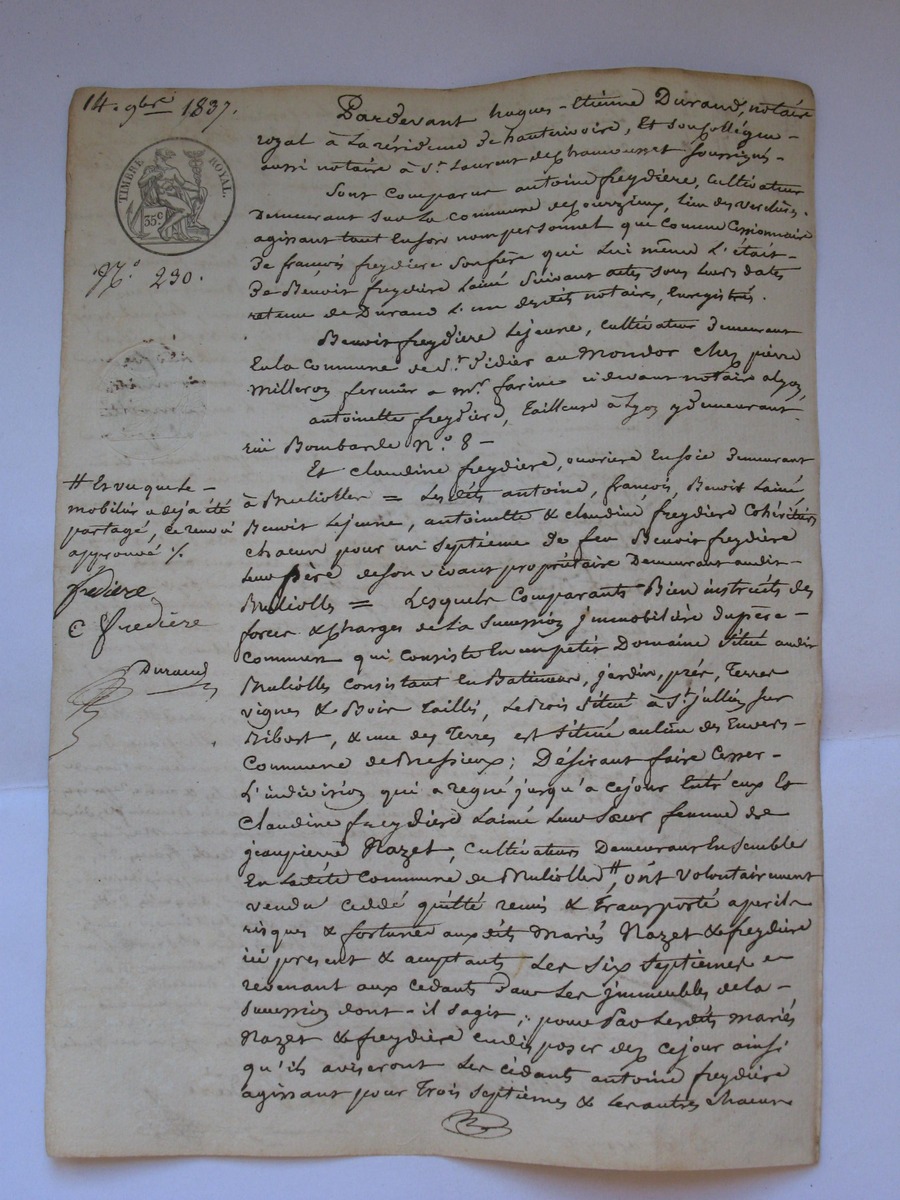 14 9bre 1837.
TIMBRE ROYAL.
35 c
N.o 230.
Pardevant hugues-Etienne Durand, notaire
royal à La résidence de hauterivoire, Et son Collégue
aussi notaire à St. Laurent de chamousset soussignés
Sont Comparus antoine freydiere, Cultivateur
Demeurant sur La commune de Courzieux, lieu des verchères.
agissant tant En son nom personnel que comme Cessionnaire
De françois freydiere son frère qui Lui même L'était
De Benoit freydière Lainé Suivant actes sous Leurs dates
retenu de Durand L'un desdits notaires, Enregistrés.
Benoit freydiere Lejeune, cultivateur Demeurant
En la Commune de St. Didier au Mondor chez pierre
Milleron fermier a mr. farine ci devant notaire a Lyon,
antoinette freydiere, Tailleuse à Lyon y demeurant
rüe Bombarde N.o 8 -
Et claudine freydiere, ouvriere En soie Demeurant
à Bruliolles = Les dits antoine, francois, Benoit Lainé
Benoit Lejeune, antoinette & claudine freydiere Cohéritiers
chacun pour un septieme de feu Benoit freydiere
Leur père de son vivant propriétaire Demeurant audit
Bruliolles = Lesquels Comparants Bien instruits des
forces & charges de La Succession jmmobilière du père
commun qui consiste En un petit Domaine situé audit
Bruliolles Consistant En Batiments, jardin, prés, Terres
vignes & Bois Taillis, Le Bois situé à St. jullien sur
Bibost, & une des Terres est située au lieu des Envers
Commune de Bressieux; Désirant faire Cesser
L'indivision qui a regné jusqu'a ce jour Entr'eux Et
Claudine freydiere Lainé Leur Sœur femme de
jean pierre Nazet, Cultivateurs Demeurant Ensemble
En Ladite Commune de Bruliolles #, ont volontairement
vendu cédé quitté remis & Transporté a perils
risques & fortune aux dits mariés Nazet & freydiere
ici present & acceptants Les Six Septiemes
revenant aux cedants Dans Les jmmeubles de la
succession dont-il s'agit, pour Par Lesdits mariés
Nazet & freydiere En disposer dez ce jour ainsi
qu'ils aviseront Les cédants antoine freydiere
agissant pour Trois Septiemes & Les autres chacun
# Et vu que Le
mobilier a deja été
partagé, ce renvoi
approuvé ./.
frediere
C fredière
Durand